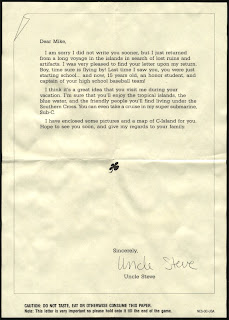 Dear Mike,
I am sorry I did not write you sooner, but I just returned
from a long voyage in the islands in search of lost ruins and
artifacts. I was very pleased to find your letter upon my return.
Boy, time sure is flying by! Last time I saw you, you were just
starting school... and now, 15 years old, an honor student, and
captain of your high school baseball team!
I think it's a great idea that you visit me during your
vacation. I'm sure that you'll enjoy the tropical islands, the
blue water, and the friendly people you'll find living under the
Southern Cross. You can even take a cruise in my super submarine,
Sub-C.
I have enclosed some pictures and a map of C-Island for you.
Hope to see you soon, and give my regards to your family.
Sincerely,
Uncle Steve
Uncle Steve
CAUTION: DO NOT TASTE, EAT OR OTHERWISE CONSUME THIS PAPER.
Note: This letter is very important so please hold onto it till the end of the game.